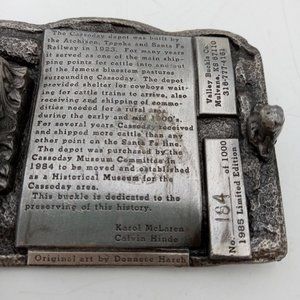 The Cassoday depot was built by
the Atchison, Topeka and Santa Fe
Railway in 1923. For many years
it served as one of the main ship-
ping points for cattle into and out
of the famous bluestem pastures
surrounding Cassoday. The depot
provided shelter for cowboys wait-
ing for cattle trains to arrive, also
receiving and shipping of commo-
dities needed for a rural area
during the early and mid 1900's.
For several years Cassoday received
and shipped more cattle than any
other point on the Santa Fe line.
The depot was purchased by the
Cassoday Museum Committee in
1984 to be moved and established
as a Historical Museum for the
Cassoday area.
This buckle is dedicated to the
preserving of this history.
Karol McLaren
Calvin Hinde
Original art by Donnese Harsh
Valley Buckle Co.
Mulvane, KS 67110
316-777-4161
No. 184 of 1000
1985 Limited Edition